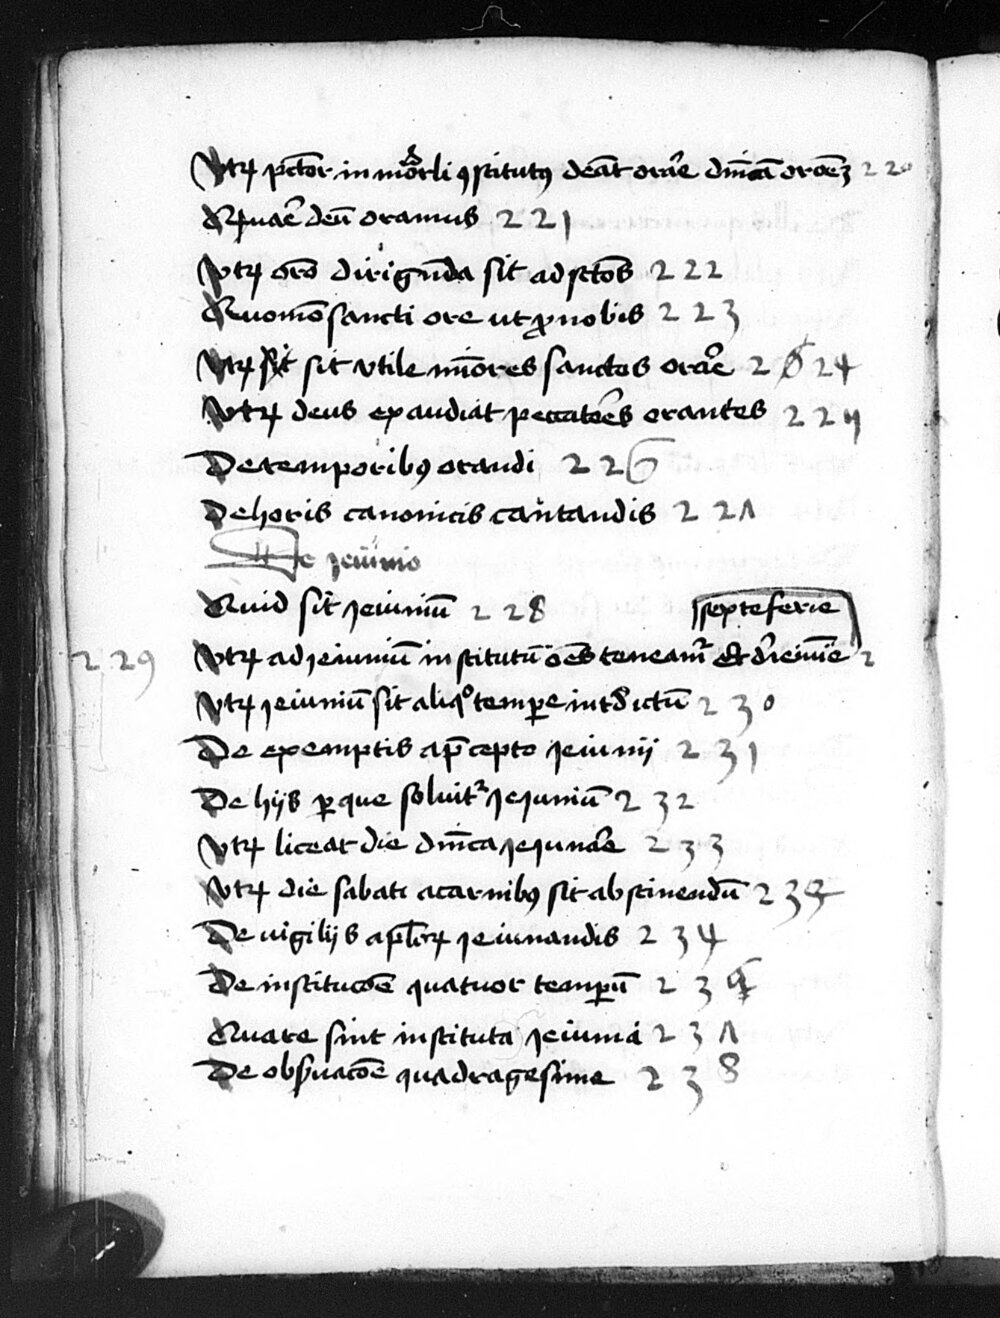 Vtrꝫ pctōr in mōrli ꝯstitutꝯ deāt orāre dn̄icā oroēꝫ 220
Quaꝛē deū oramus 221
Vtrꝫ orō dirigēnda sit ad sctōs 222
Quomō sancti orēt ꝓ nobis 223
Vtrꝫ sit sit vtile mīores sanctos orare 224
Vtrꝫ deus exaudiat peccatōēs orantes 225
De temporibꝯ orandi 226
De horis canonicis cantandis 227
De Jeiunio
Quid sit Jeiuniū 228 septeserie
229 Vtrꝫ ad Jeiuniū institutū oēs teneant̄ 2
Vtrꝫ Jeiuniū sit aliqͦ tempore intdictū 230
De exemptis a p̄cepto Jeiunij 231
De hijs per que soluitᷣ Jeiuniū 232
Vtrꝫ liceat die dn̄ica Jeiunāre 233
Vtrꝫ die sabati a carnibꝯ sit abstinendū 234
De vigilijs apl̄orꝫ Jeiunandis 234
De institucōe quatuor temporū 23
Quare sint instituta Jeiunia 237
De obseruacōe quadragesime 238